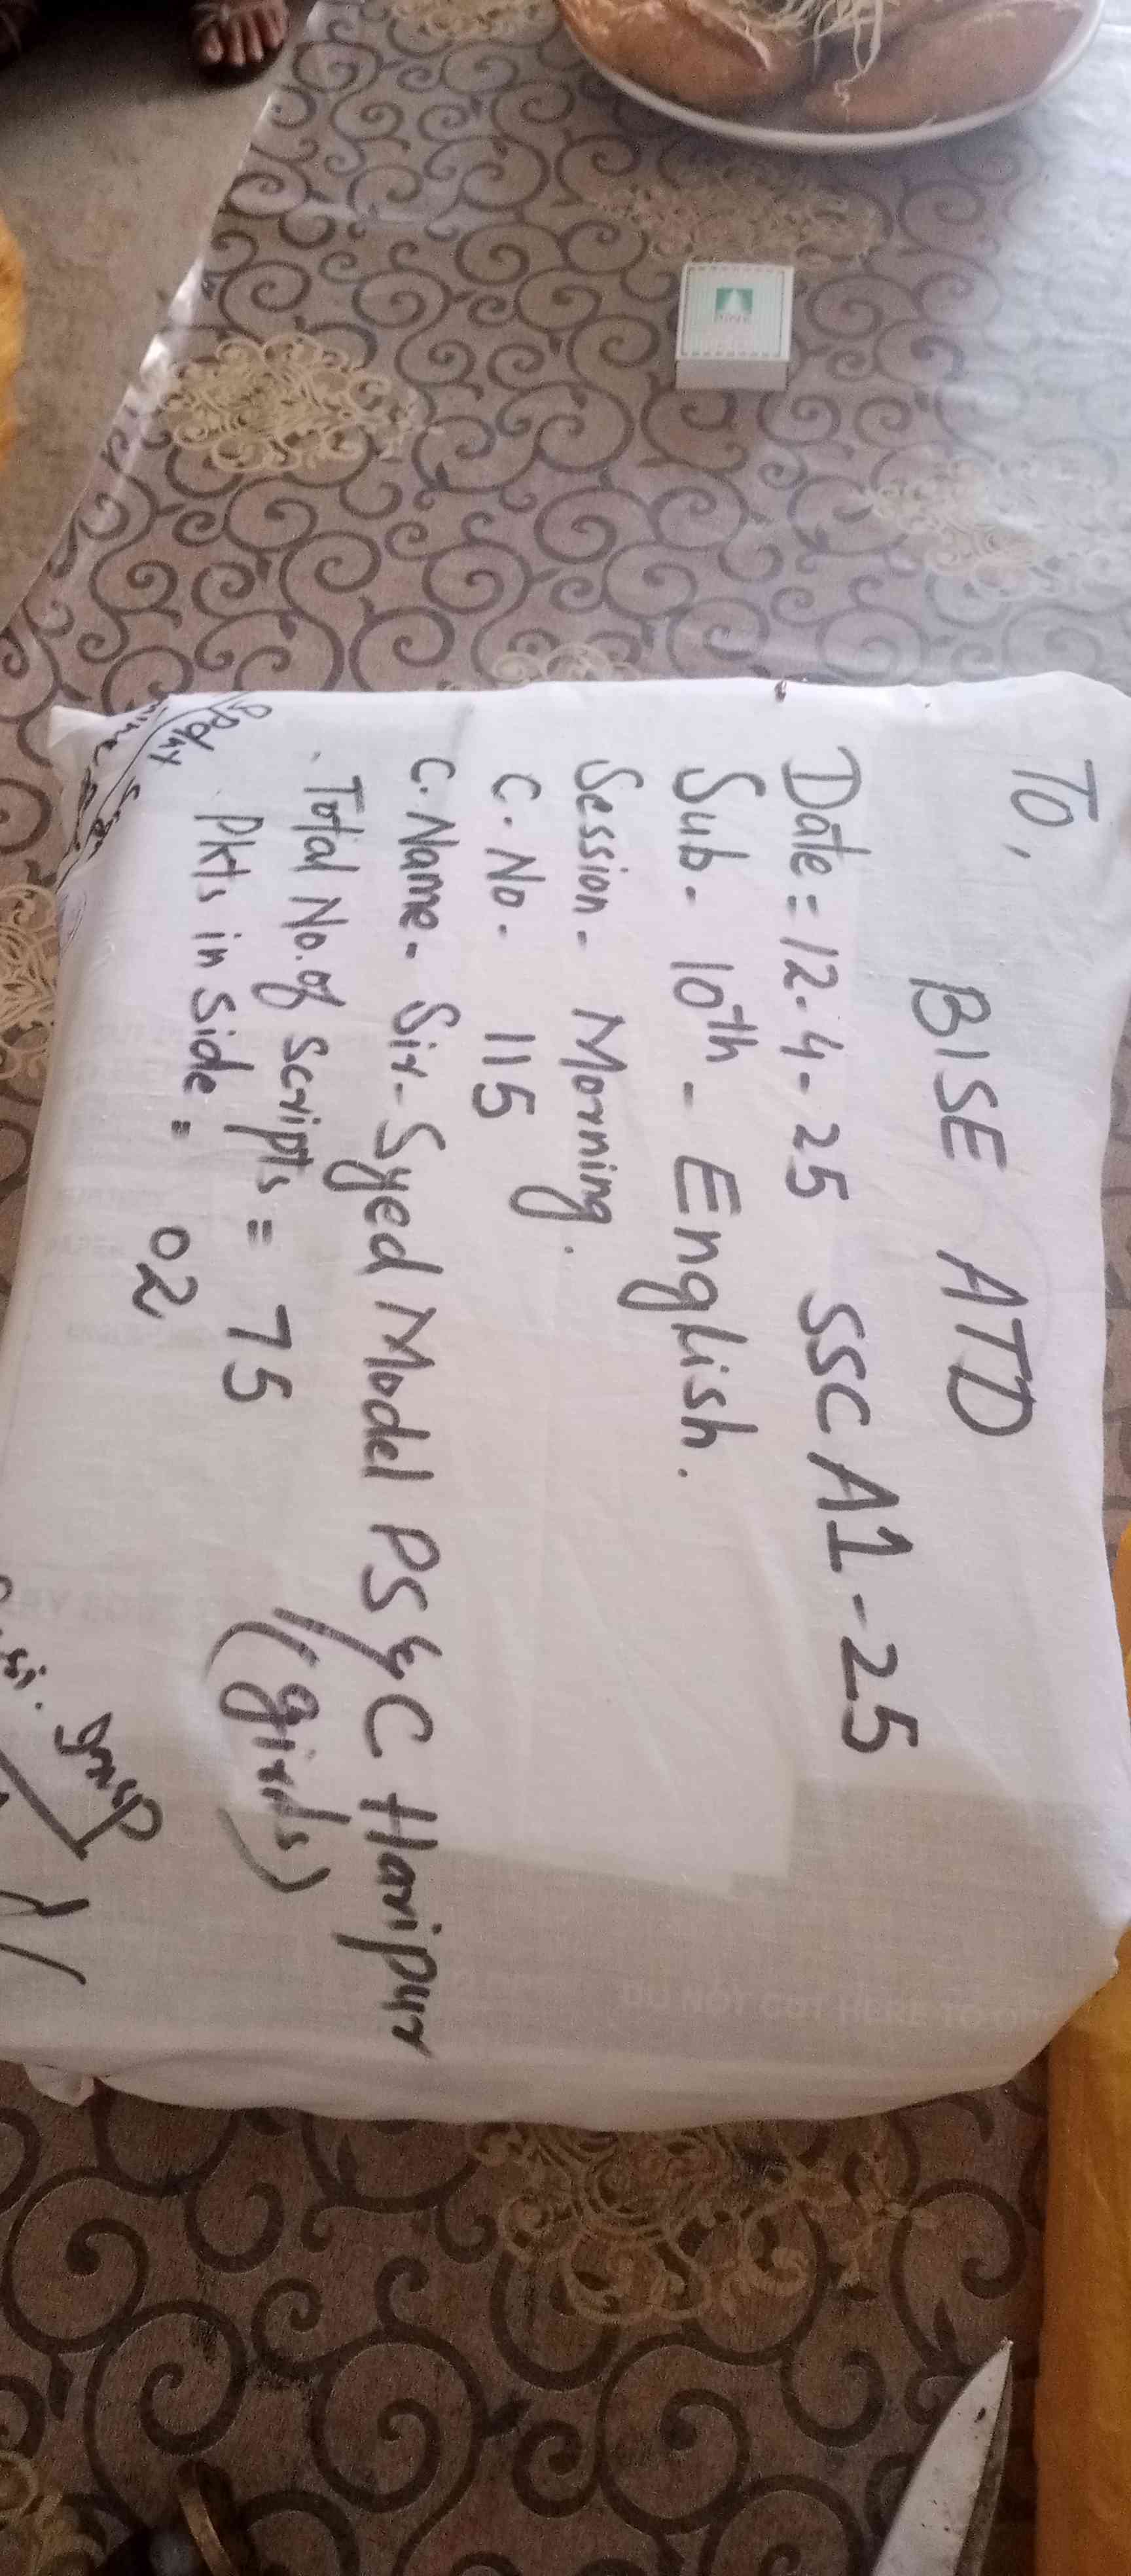 To,
BISE ATD
Date = 12.4-25 SSC A1-25
Sub- 10th - English.
Session- Morning.
C.No. 115
C.Name- Sir-Syed Model PS&C Haripur
(girls)
Total No.of scripts = 75
Pkts in Side = 02
PINE
DO NOT CUT HERE TO